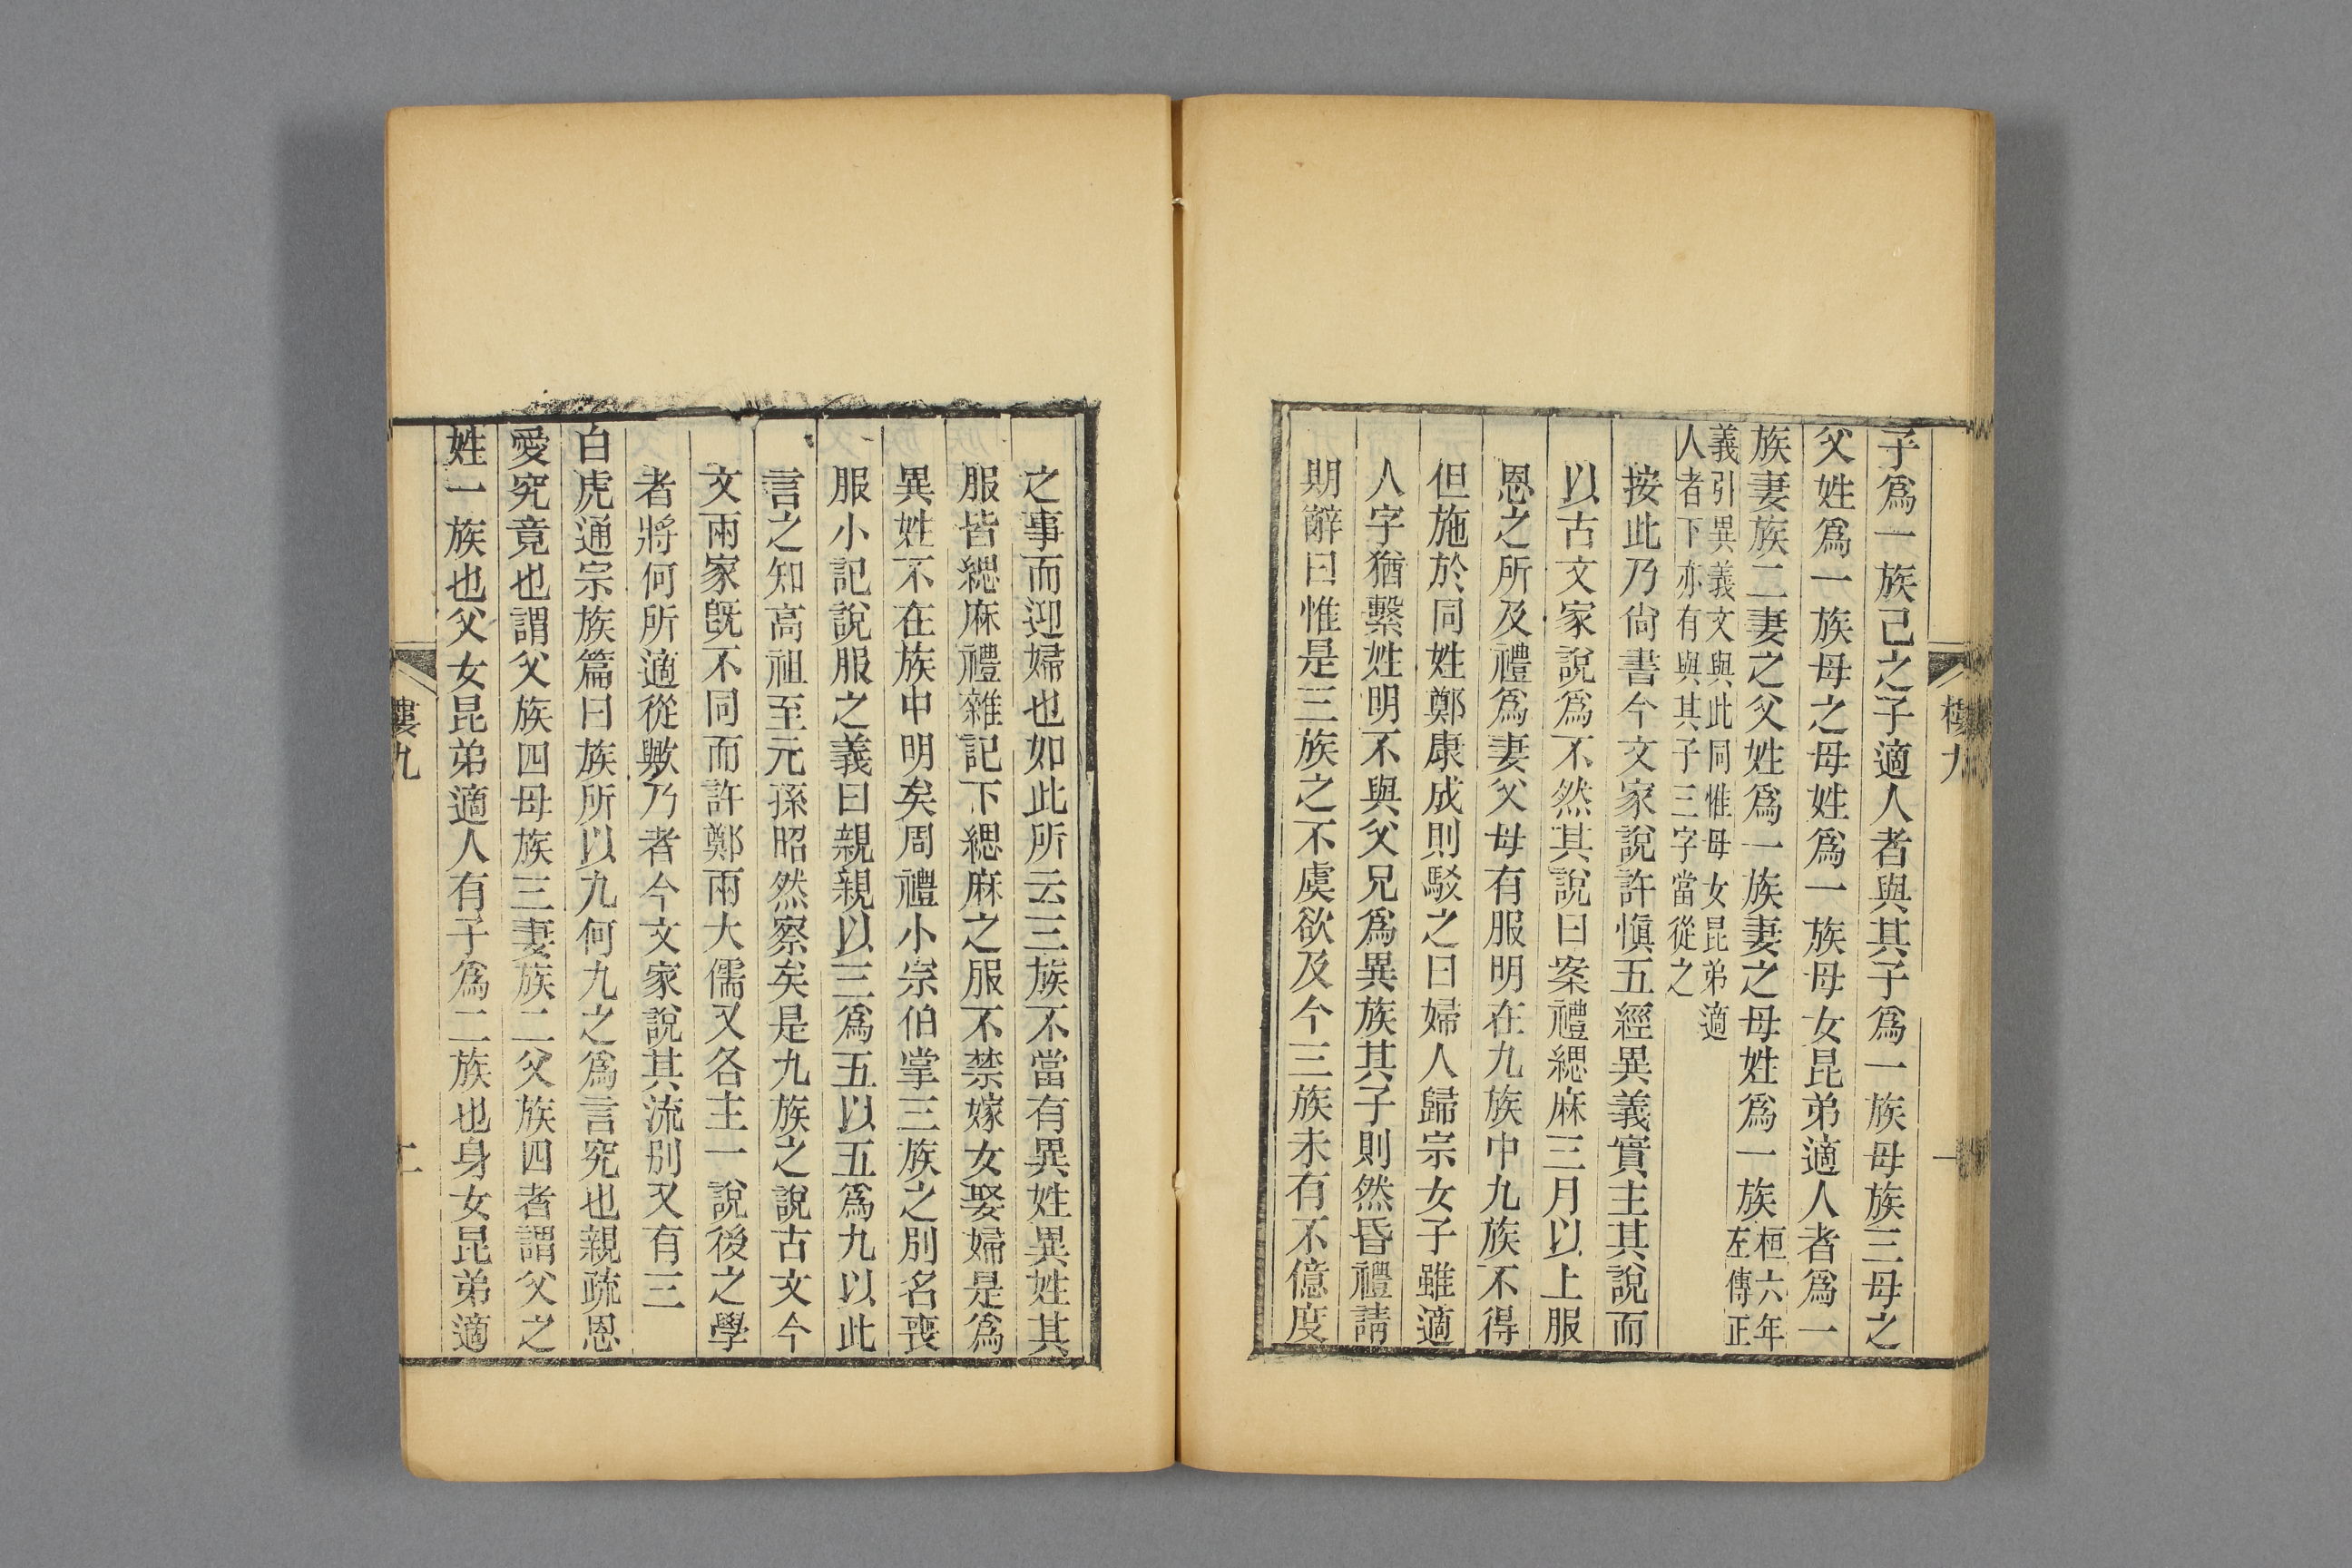 子爲一族己之子適人者與其子爲一族母族三母之
父姓爲一族母之母姓爲一族母女昆弟適人者爲一
族妻族二妻之父姓爲一族妻之母姓爲一族桓六年左傳正
義引異義文與此同惟母女昆弟適
人者下亦有與其子三字當從之
按此乃尙書今文家說許愼五經異義實主其說而
以古文家說爲不然其說曰案禮緦麻三月以上服
恩之所及禮爲妻父母有服明在九族中九族不得
但施於同姓鄭康成則駁之曰婦人歸宗女子雖適
人字猶繫姓明不與父兄爲異族其子則然昏禮請
期辭曰惟是三族之不虞欲及今三族未有不億度
之事而迎婦也如此所云三族不當有異姓異姓其
服皆緦麻禮雜記下緦麻之服不禁嫁女娶婦是爲
異姓不在族中明矣周禮小宗伯掌三族之別名喪
服小記說服之義曰親親以三爲五以五爲九以此
言之知高祖至元孫昭然察矣是九族之說古文今
文兩家旣不同而許鄭兩大儒又各主一說後之學
者將何所適從歟乃者今文家說其流別又有三
白虎通宗族篇曰族所以九何九之爲言究也親疏恩
愛究竟也謂父族四母族三妻族二父族四者謂父之
姓一族也父女昆弟適人有子爲二族也身女昆弟適
樓九